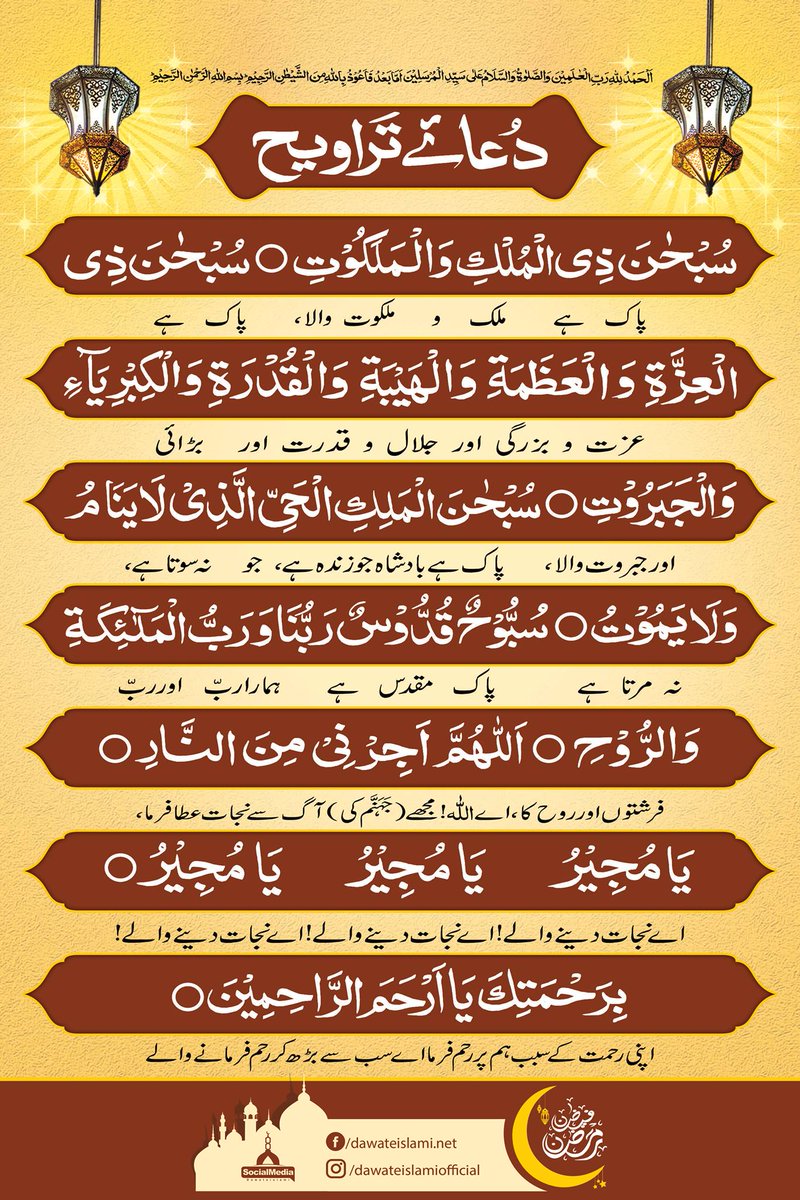 اَلْحَمْدُ لِلّٰهِ رَبِّ الْعٰلَمِیْنَ وَالصَّلٰوةُ وَالسَّلَامُ عَلٰی سَیِّدِ الْمُرْسَلِیْنَ اَمَّا بَعْدُ فَاَعُوْذُ بِاللّٰهِ مِنَ الشَّیْطٰنِ الرَّجِیْمِ بِسْمِ اللّٰهِ الرَّحْمٰنِ الرَّحِیْمِ
دُعائے تَراویح
سُبْحٰنَ ذِی الْمُلْكِ وَالْمَلَكُوْتِ ○ سُبْحٰنَ ذِی
پاک ہے ملک و ملکوت والا، پاک ہے
الْعِزَّةِ وَالْعَظَمَةِ وَالْهَیْبَةِ وَالْقُدْرَةِ وَالْكِبْرِیَآءِ
عزت و بزرگی اور جلال و قدرت اور بڑائی
وَالْجَبَرُوْتِ ○ سُبْحٰنَ الْمَلِكِ الْحَیِّ الَّذِیْ لَا یَنَامُ
اور جبروت والا، پاک ہے بادشاہ جو زندہ ہے، جو نہ سوتا ہے،
وَلَا یَمُوْتُ ○ سُبُّوْحٌ قُدُّوْسٌ رَبُّنَا وَرَبُّ الْمَلٰٓئِكَةِ
نہ مرتا ہے پاک مقدس ہے ہمارا ربّ اور ربّ
وَالرُّوْحِ ○ اَللّٰهُمَّ اَجِرْنِیْ مِنَ النَّارِ ○
فرشتوں اور روح کا، اے اللہ! مجھے (جَہَنَّم کی) آگ سے نجات عطا فرما،
یَا مُجِیْرُ یَا مُجِیْرُ یَا مُجِیْرُ ○
اے نجات دینے والے! اے نجات دینے والے! اے نجات دینے والے!
بِرَحْمَتِكَ یَا اَرْحَمَ الرَّاحِمِیْنَ ○
اپنی رحمت کے سبب ہم پر رحم فرما اے سب سے بڑھ کر رحم فرمانے والے
فیضانِ رمضان
/dawateislami.net
/dawateislamiofficial
SocialMedia
dawateislami